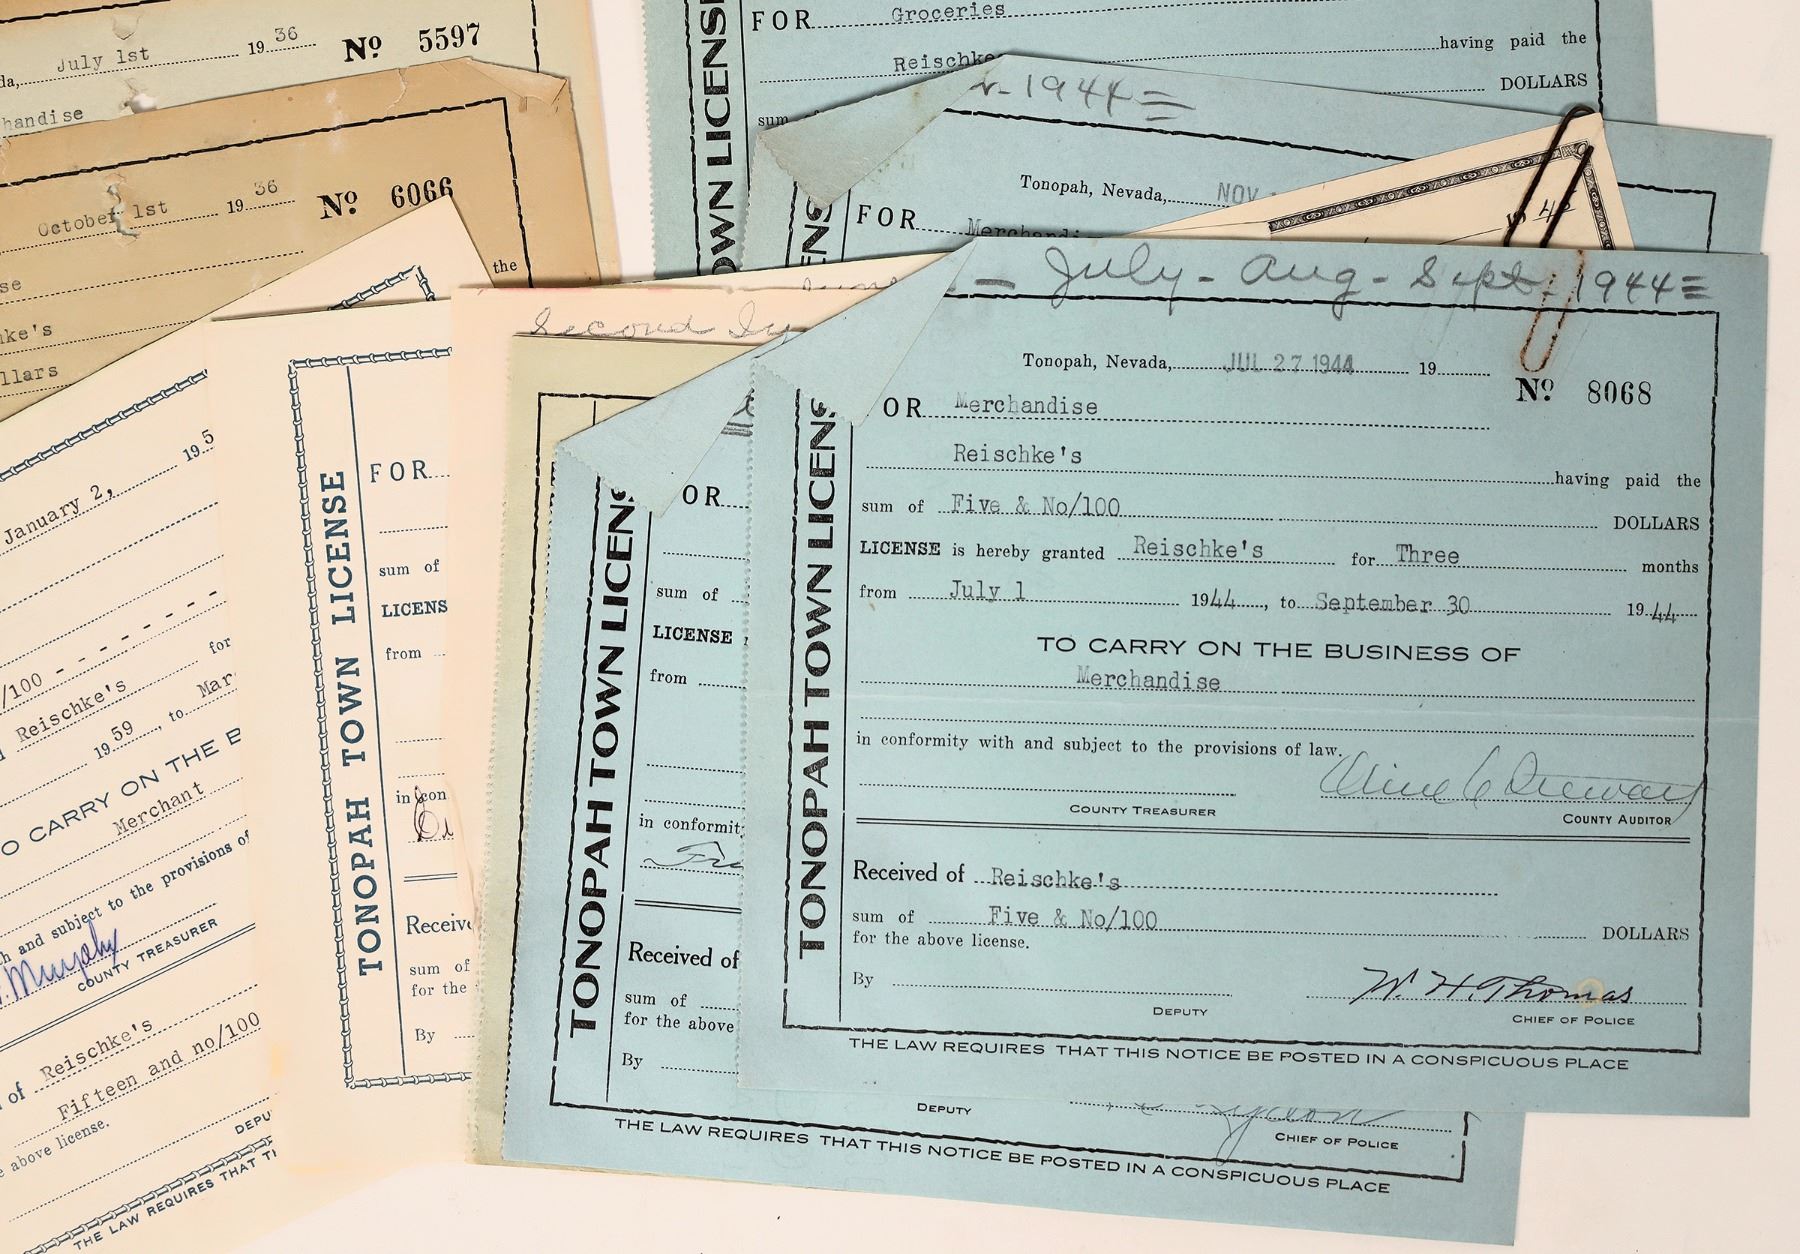 July 1st 1936 Nº 5597
handise
October 1st 1936 Nº 6066
the
ke's
llars
FOR Groceries
Reischke
having paid the
DOLLARS
sum
TOWN LICENSE
1944
Tonopah, Nevada, NOV
FOR Merchandi
January 2, 195
/100 - - - - - - - - -
Reischke's for
1959, to Mar
O CARRY ON THE B
Merchant
h and subject to the provisions of
Murphy
COUNTY TREASURER
of Reischke's
Fifteen and no/100
e above license.
DEPU
THE LAW REQUIRES THAT TH
TONOPAH TOWN LICENSE
FOR
sum of
LICENS
from
in con
Receiv
sum of
for the
By
Second
TONOPAH TOWN LICENS
OR
sum of
LICENSE
from
in conformit
Received of
sum of
for the above
By
DEPUTY
CHIEF OF POLICE
THE LAW REQUIRES THAT THIS NOTICE BE POSTED IN A CONSPICUOUS PLACE
July - Aug - Sept - 1944
TONOPAH TOWN LICENS
Tonopah, Nevada, JUL 27 1944 19
Nº 8068
OR Merchandise
Reischke's having paid the
sum of Five & No/100 DOLLARS
LICENSE is hereby granted Reischke's for Three months
from July 1 1944, to September 30 1944
TO CARRY ON THE BUSINESS OF
Merchandise
in conformity with and subject to the provisions of law.
COUNTY TREASURER COUNTY AUDITOR
Received of Reischke's
sum of Five & No/100 DOLLARS
for the above license.
By W. H. Thomas
DEPUTY CHIEF OF POLICE
THE LAW REQUIRES THAT THIS NOTICE BE POSTED IN A CONSPICUOUS PLACE